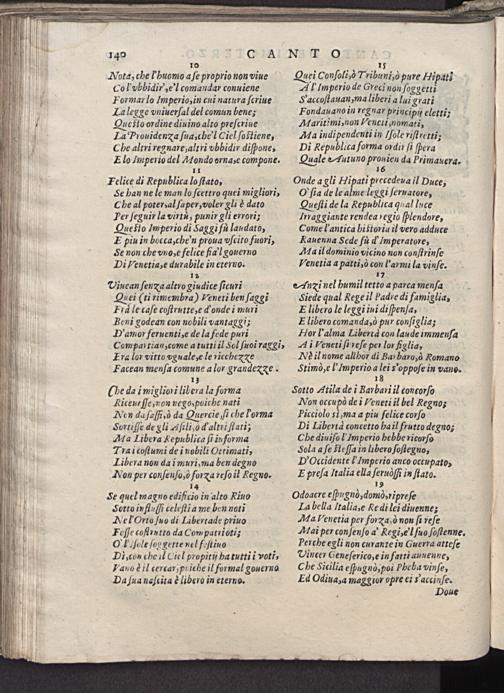 140 CANTO
10
Nota, che l'huomo a se proprio non viue
Co l'vbbidir', e'l comandar conuiene
Formar lo Imperio, in cui natura scriue
La legge vniuersal del comun bene;
Questo ordine diuino alto prescriue
La Prouidenza sua, che'l Ciel sostiene,
Che altri regnare, altri vbbidir dispone,
E lo Imperio del Mondo orna, e compone.
11
Felice di Republica lo stato,
Se han ne le man lo scettro quei migliori,
Che al poter, al saper, voler gli è dato
Per seguir la virtù, punir gli errori;
Questo Imperio di Saggi fù laudato,
E piu in bocca, che'n proua vscito fuori,
Se non che vno, e felice sia'l gouerno
Di Venetia, e durabile in eterno.
12
Viuean senza altro giudice sicuri
Quei (ti rimembra) Veneti ben saggi
Frà le case costrutte, e d'onde i muri
Beni godean con nobili vantaggi;
D'amor feruenti, e de la fede puri
Compartian, come a tutti il Sol suoi raggi,
Era lor vitto vguale, e le ricchezze
Facean mensa comune a lor grandezze.
13
Che da i migliori libera la forma
Riceuesse, non nego, poiche nati
Non da sassi, ò da Quercie, si che l'orma
Sortisse de gli Asili, ò d'altri stati;
Ma Libera Republica si informa
Tra i costumi de i nobili Ottimati,
Libera non da i muri, ma ben degno
Non per consenso, ò forza reso il Regno.
14
Se quel magno edificio in alto Riuo
Sotto influssi celesti a me ben noti
Ne l'Orto suo di Libertade priuo
Fosse costrutto da Compatrioti;
O l'Isole soggette nel festiuo
Dì, con che il Ciel propitij ha tutti i voti,
Vano è il cercar, poiche il formal gouerno
Da sua nascita è libero in eterno.
15
Quei Consoli, ò Tribuni, ò pure Hipati
A l'Imperio de Greci non soggetti
S'accostauan, ma liberi a lui grati
Fondauano in regnar principij eletti;
Maritimi, non Veneti, nomati,
Ma indipendenti in Isole ristretti;
Di Republica forma ordir si spera
Quale Autuno prouien da Primauera.
16
Onde a gli Hipati precedeua il Duce,
O sia de le alme leggi seruatore,
Questi de la Republica qual luce
Irraggiante rendea regio splendore,
Come l'antica historia il vero adduce
Rauenna Sede fù d'Imperatore,
Ma il dominio vicino non constrinse
Venetia a patti, ò con l'armi la vinse.
17
Anzi nel humil tetto a parca mensa
Siede qual Rege il Padre di famiglia,
E libero le leggi iui dispensa,
E libero comanda, ò pur consiglia;
Hor l'alma Libertà con laude immensa
A i Veneti si rese per lor figlia,
Nè il nome allhor di Barbaro, ò Romano
Stimò, e l'Imperio a lei s'oppose in vano.
18
Sotto Atila de i Barbari il concorso
Non occupò de i Veneti il bel Regno;
Picciolo sì, ma a piu felice corso
Di Libertà concetto ha il frutto degno;
Che diuiso l'Imperio hebbe ricorso
Sola a se stessa in libero sostegno,
D'Occidente l'Imperio anco occupato,
E presa Italia ella seruossi in stato.
19
Odoacre espugnò, domò, riprese
La bella Italia, e Re di lei diuenne;
Ma Venetia per forza, ò non si rese
Mai per consenso a' Regi, e'l suo sostenne.
Perche egli non curante in Guerra attese
Vincer Genserico, e in fatti auuenne,
Che Sicilia espugnò, poi Pheba vinse,
Ed Odiua, a maggior opre ei s'accinse.
Doue